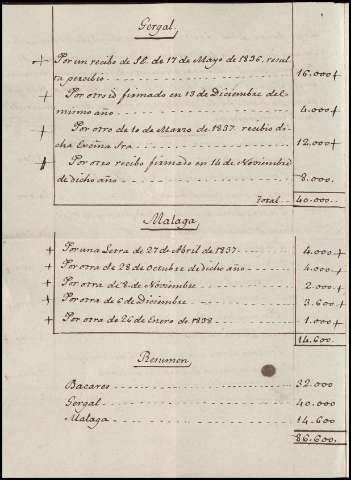 Gergal
+ Por un recibo de S.E. de 17 de Mayo de 1836, resul
ta percibio - - - 16.000 +
+ Por otro id firmado en 13 de Diciembre del
mismo año - - - 4.000 +
+ Por otro de 10 de Marzo de 1837. recibio di-
cha Excma Sra - - - 12.000 +
+ Por otro recibo firmado en 14 de Noviembre
de dicho año - - - 8.000
Total.. 40.000
Malaga
+ Por una Letra de 27 de Abril de 1837. - - - 4.000 +
+ Por otra de 28 de Octubre de dicho año - - - 4.000 +
+ Por otra de 8 de Noviembre - - - 2.000 +
+ Por otra de 6 de Diciembre - - - 3.600 +
+ Por otra de 26 de Enero de 1838 - - - 1.000 +
14.600
Resumen
Bacares - - - 32.000
Gergal - - - 40.000
Malaga - - - 14.600
86.600